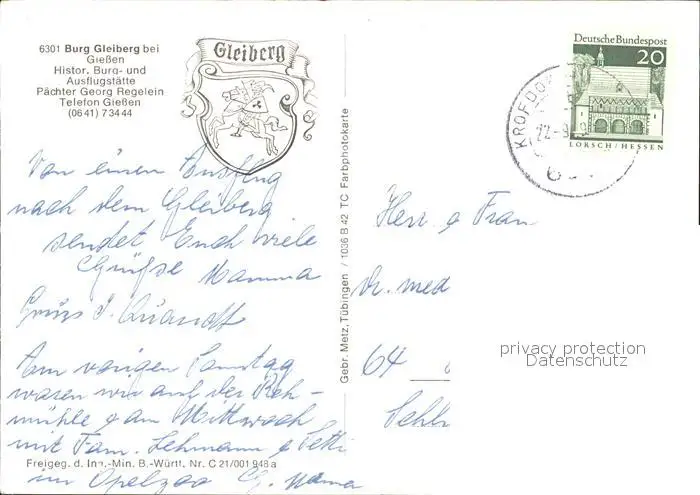 6301 Burg Gleiberg bei
Gießen
Histor. Burg- und
Ausflugstätte
Pächter Georg Regelein
Telefon Gießen
(0641) 73444
Gleiberg
Von einen Ausflug
nach dem Gleiberg
sendet Euch viele
Grüße Mamma
Gruss
Am vorigen Samstag
waren wir auf der Reh-
mühle & am Mittwoch
mit Fam. Lehmann &
im Opelzoo Gr. Mama
Freigeg. d. Inn.-Min. B.-Württ. Nr. C 21/001 948 a
Gebr. Metz, Tübingen / 1036 B 42 TC Farbphotokarte
Deutsche Bundespost
20
LORSCH/HESSEN
KROFDO
Herr & Frau
Dr. med
64
privacy protection
Datenschutz